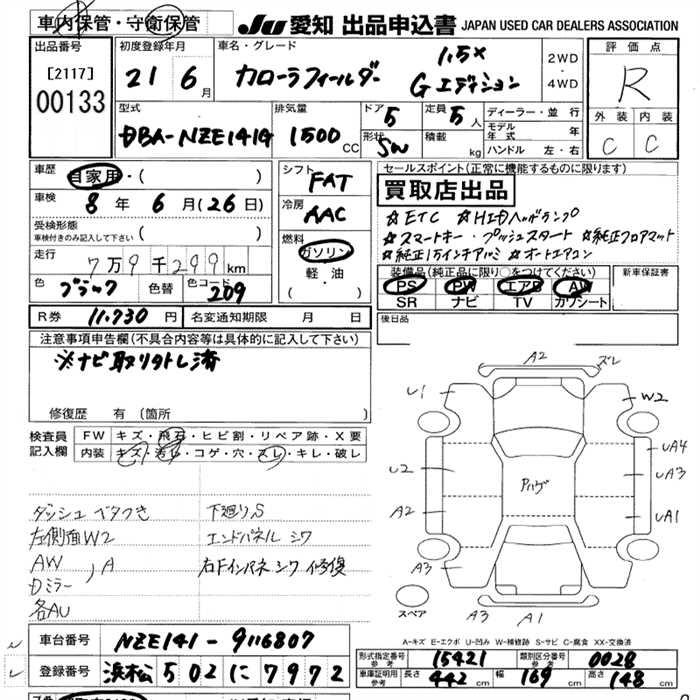 車内保管・守衛保管
JU 愛知 出品申込書 JAPAN USED CAR DEALERS ASSOCIATION
出品番号
[2117]
00133
初度登録年月
21 6月
車名・グレード
カローラフィールダー 1.5X Gエディション
2WD
・
4WD
評価点
R
外装 内装
C C
型式
DBA-NZE141G
排気量
1500 CC
ドア
5
形状
SW
定員
5人
積載
kg
ディーラー・並行
モデル年式 年
ハンドル 左・右
車歴
自家用・( )
車検
8年 6月(26日)
受検形態
車検付きのみ記入して下さい ( )
走行
7万9千299km
色
ブラック
色替
色コード
209
シフト
FAT
冷房
AAC
燃料
ガソリン
軽・油
( )
セールスポイント(正常に機能するものに限ります)
買取店出品
☆ETC ☆HIDヘッドランプ
☆スマートキー・プッシュスタート ☆純正フロアマット
☆純正15インチアルミ ☆オートエアコン
装備品(純正品に限り○をつけてください)
PS PW エアB AW
SR ナビ TV ガソシート
新車保証書
後日品
R券 11,730円
名変通知期限 月 日
注意事項申告欄(不具合内容等は具体的に記入して下さい)
※ナビ取りはトレ済
修復歴 有(箇所
検査員記入欄
FW キズ・飛石・ヒビ割・リペア跡・X要
内装 キズ・汚レ・コゲ・穴・スレ・キレ・破レ
ダッシュ ベタつき
左側面W2
AW , A
Dミラー
各AU
下廻りS
エンドパネル シワ
右Fインパネ シワ 修復
A2 ズレ
U1 W2
UA4
U2 UA3
アハゲ
A2 UA1
A3 A3
スペア
A3 A1
A-キズ E-エクボ U-凹み W-補修跡 S-サビ C-腐食 XX-交換済
車台番号
NZE141-9116807
登録番号
浜松502に7972
形式指定番号 参考 15421
類別区分番号 参考 0028
車庫証明用 参考 長さ 442cm 幅 169cm 高さ 148cm